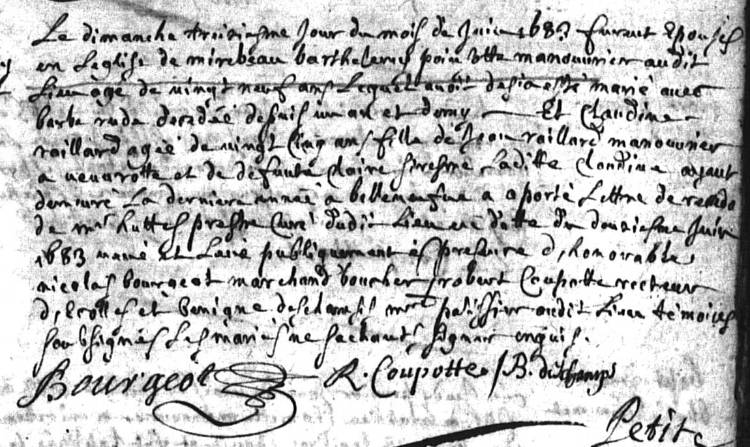 Le dimanche troisiesme Jour du mois de Juin 1683 furent Epousés
en L'eglise de mirebeau barthelemy poinsotte manouvrier audit
Lieu âgé de vingt neuf ans Lequel avoit desia esté marié avec
barbe rude decedée depuis un an et demy - Et Claudine
raillard agée de vingt Cinq ans fille de Jean raillard manouvrier
a veuvrotte et de defunte Claire Ladite Claudine ayant
demeuré La derniere année a belleneufve a aporté Lettre de
de mr huttes prestre Curé dudit Lieu en datte du Juin
1683 et publiquement és presence d'honorable
nicolas bourgeot marchand boucher robert Coupotte recteur
d'Escolles et benigne deschamps mre patissier audit Lieu témoins
soubsignés Les mariés ne sachants signer enquis.
Bourgeot R. Coupotte B. deschamps
Petit